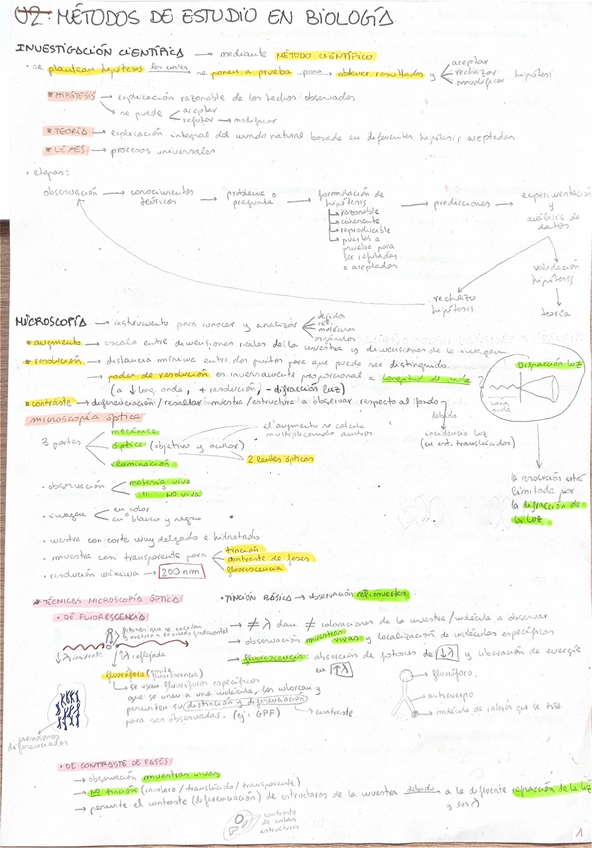 U2: MÉTODOS DE ESTUDIO EN BIOLOGÍA
INVESTIGACIÓN CIENTÍFICA → mediante MÉTODO CIENTÍFICO
• se plantean hipótesis las cuales se ponen a prueba para obtener resultados y aceptar
rechazar hipótesis
o modificar
* HIPÓTESIS → explicación razonable de los hechos observados
→ se puede aceptar
refutar → modificar
* TEORÍA → explicación integral del mundo natural basada en diferentes hipótesis aceptadas
* LEYES → procesos universales
• etapas:
observación → conocimientos teóricos → problema o pregunta → formulación de hipótesis → predicciones → experimentación y análisis de datos
→ razonable
→ coherente
→ reproducible
→ puestas a prueba para ser refutadas o aceptadas
validación hipótesis
rechazo hipótesis
teoría
MICROSCOPÍA → instrumento para conocer y analizar tejidos
cél.
moléculas
orgánulos
* aumento → escala entre dimensiones reales de la muestra y dimensiones de la imagen
* resolución → distancia mínima entre dos puntos para que puede ser distinguido
→ poder de resolución es inversamente proporcional a longitud de onda
(a ↓ long. onda, + resolución, - difracción luz)
Difracción luz
long. onda
* contraste → diferenciación / resaltar muestra/estructura a observar respecto al fondo
debido
incidencia luz
(en est. translúcidos)
la resolución está limitada por la difracción de la luz
microscopía óptica
3 partes mecánica
óptica (objetivo y ocular)
iluminación
el aumento se calcula multiplicando ambos
2 lentes ópticos
• observación materia viva
" no viva
• imagen en color
en blanco y negro
• muestra con corte muy delgado e hidratado
• muestra casi transparente para tinción
contraste de fases
fluorescencia
• resolución máxima → 200 nm
* TÉCNICAS MICROSCOPÍA ÓPTICA
• TINCIÓN BÁSICA → observación cél. muertas
• DE FLUORESCENCIA
→ ≠ λ dan ≠ coloraciones de la muestra/molécula a observar
→ observación muestras vivas y localización de moléculas específicas
→ fluorescencia: absorción de fotones de ↓λ y liberación de energía en ↑λ
↑λ reflejada
fluoróforo (emite fluorescencia)
→ se usan fluoróforos específicos que se unen a una molécula, las colorean y permiten su distinción y diferenciación para ser observadas. (ej: GPF)
→ contraste
cromosomas diferenciados
fluoróforo
anticuerpo
molécula de interés que se tiñe
• DE CONTRASTE DE FASES
→ observación muestras vivas
→ No tinción (incoloro / translúcido / transparente)
→ permite el contraste (diferenciación) de estructuras de la muestra debido a la diferente refracción de la luz
contraste de estas estructuras
1